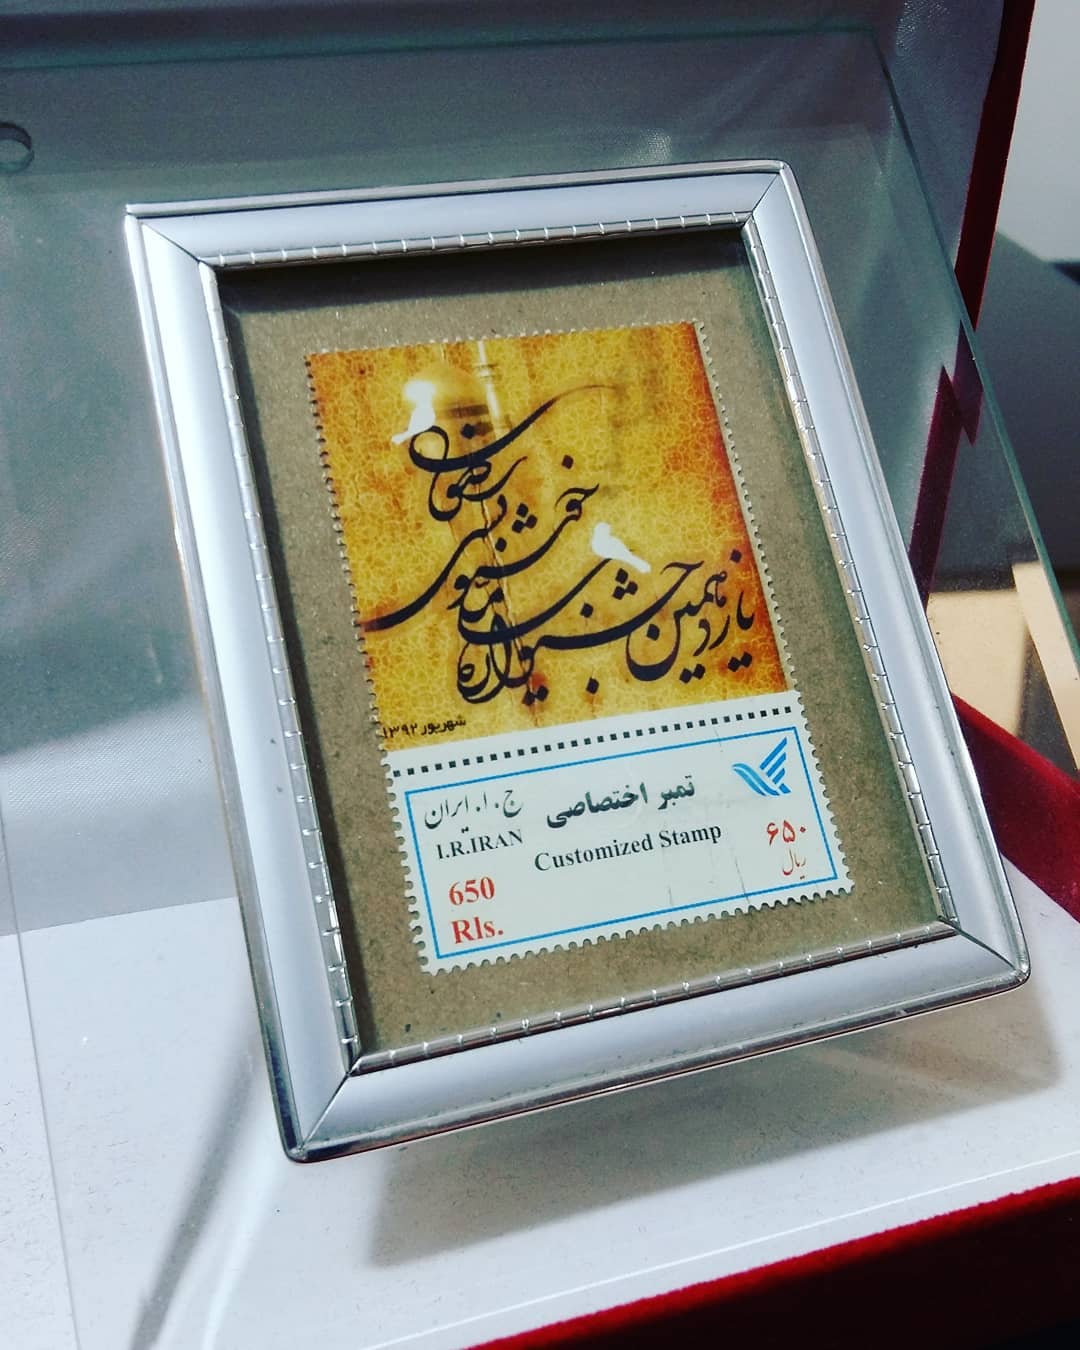 خوشنویسی
یازدهمین جشنواره
شهریور ۱۳۹۲
ج.ا.ایران
I.R.IRAN
تمبر اختصاصی
Customized Stamp
۶۵۰
ریال
650
Rls.